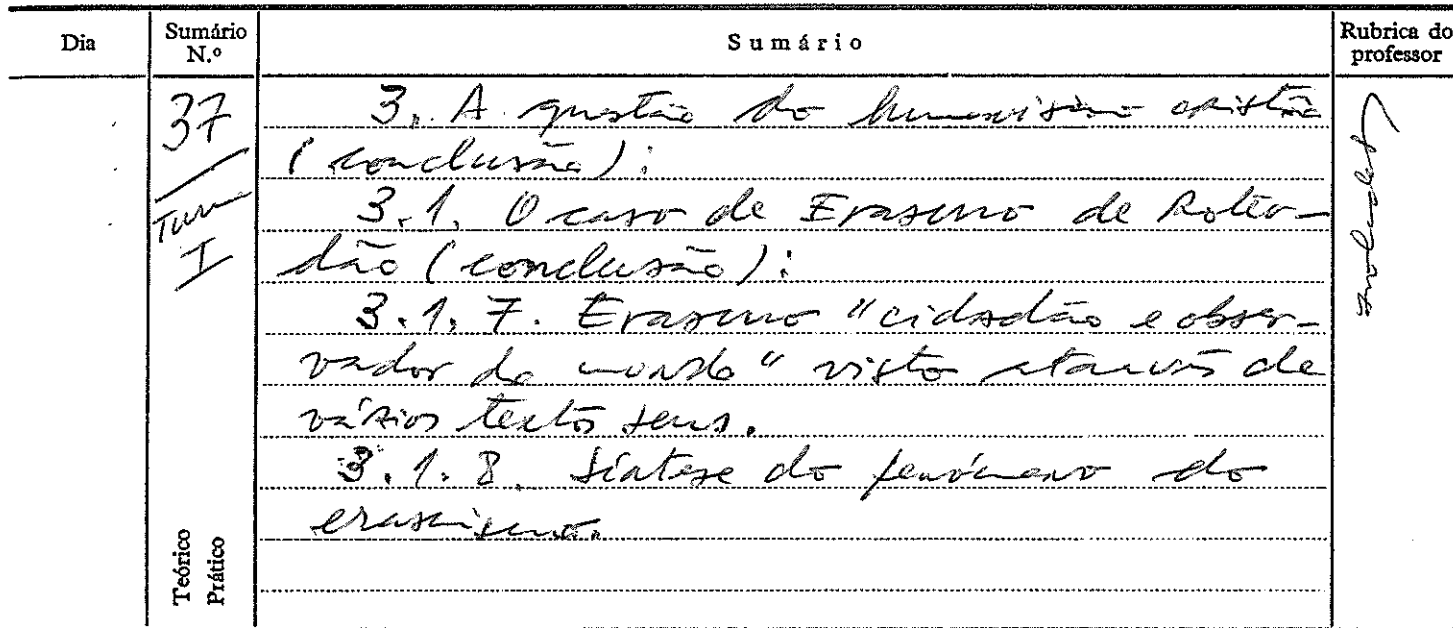 Dia
Sumário N.º
Sumário
Rubrica do professor
37
Turma
I
3. A questão do humanismo cristão
(conclusão):
3.1. O caso de Erasmo de Roter-
dão (conclusão):
3.1.7. Erasmo "cidadão e obser-
vador do mundo" visto através de
vários textos seus.
3.1.8. Síntese do fenómeno do
erasmismo.
Teórico
Prático